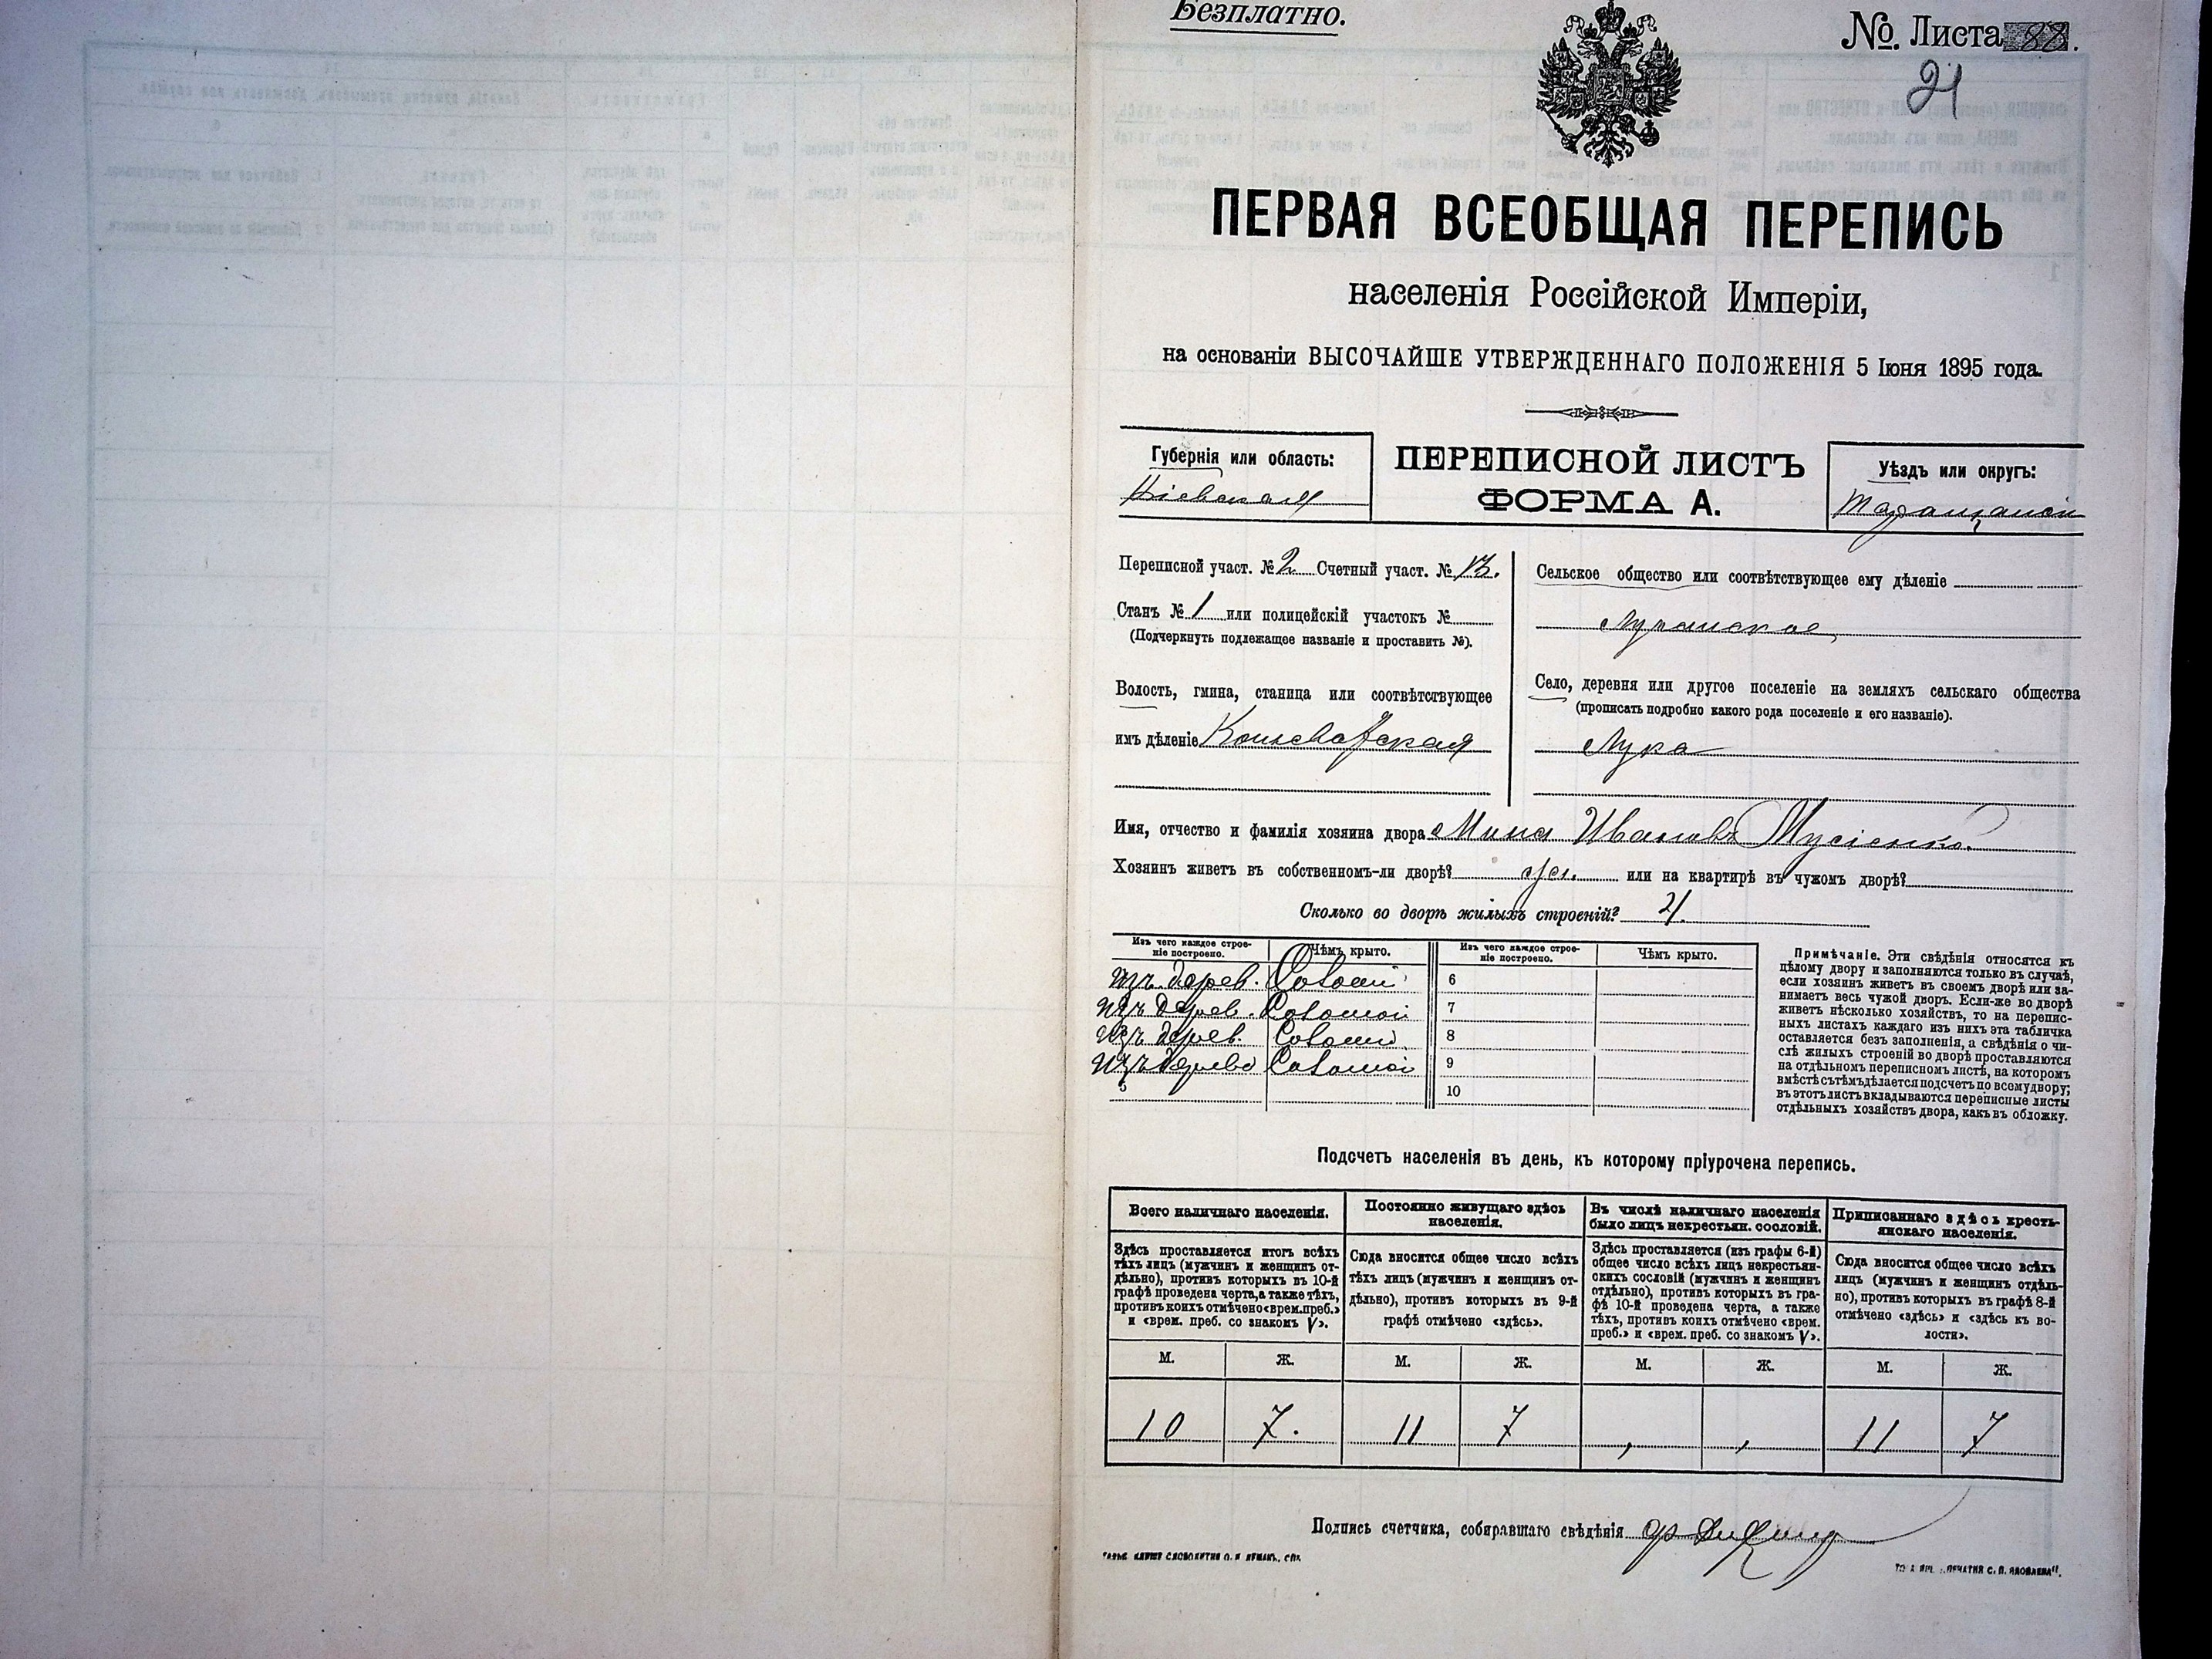 Безплатно.
№ Листа 88.
21
ПЕРВАЯ ВСЕОБЩАЯ ПЕРЕПИСЬ
населенія Россійской Имперіи,
на основаніи ВЫСОЧАЙШЕ УТВЕРЖДЕННАГО ПОЛОЖЕНІЯ 5 Іюня 1895 года.
Губернія или область:
Кіевская
ПЕРЕПИСНОЙ ЛИСТЪ
ФОРМА А.
Уѣздъ или округъ:
Таращанскій
Переписной участ. № 2 Счетный участ. № 13.
Станъ № 1 или полицейскій участокъ №
(Подчеркнуть подлежащее названіе и проставить №).
Волость, гмина, станица или соотвѣтствующее
имъ дѣленіе Коневатская
Сельское общество или соотвѣтствующее ему дѣленіе
Луканское
Село, деревня или другое поселеніе на земляхъ сельскаго общества
(прописать подробно какого рода поселеніе и его названіе).
Лука
Имя, отчество и фамилія хозяина двора Мина Ивановъ Мусіенко.
Хозяинъ живетъ въ собственномъ-ли дворѣ? да. или на квартирѣ въ чужомъ дворѣ?
Сколько во дворѣ жилыхъ строеній? 4.
Изъ чего каждое строе-
ніе построено.
Чѣмъ крыто.
Изъ чего каждое строе-
ніе построено.
Чѣмъ крыто.
изъ дерев. Соломой 6
изъ дерев. Соломой 7
изъ дерев. Соломой 8
изъ дерева Соломой 9
5 10
Примѣчаніе. Эти свѣдѣнія относятся къ
цѣлому двору и заполняются только въ случаѣ,
если хозяинъ живетъ въ своемъ дворѣ или за-
нимаетъ весь чужой дворъ. Если-же во дворѣ
живетъ нѣсколько хозяйствъ, то на перепис-
ныхъ листахъ каждаго изъ нихъ эта табличка
оставляется безъ заполненія, а свѣдѣнія о чи-
слѣ жилыхъ строеній во дворѣ проставляются
на отдѣльномъ переписномъ листѣ, на которомъ
вмѣстѣ съ тѣмъ дѣлается подсчетъ по всему двору;
въ этотъ листъ вкладываются переписные листы
отдѣльныхъ хозяйствъ двора, какъ въ обложку.
Подсчетъ населенія въ день, къ которому пріурочена перепись.
Всего наличнаго населенія.
Здѣсь проставляется итогъ всѣхъ
тѣхъ лицъ (мужчинъ и женщинъ от-
дѣльно), противъ которыхъ въ 10-й
графѣ проведена черта, а также тѣхъ,
противъ коихъ отмѣчено «врем. преб.»
и «врем. преб. со знакомъ V».
Постоянно живущаго здѣсь
населенія.
Сюда вносится общее число всѣхъ
тѣхъ лицъ (мужчинъ и женщинъ от-
дѣльно), противъ которыхъ въ 9-й
графѣ отмѣчено «здѣсь».
Въ числѣ наличнаго населенія
было лицъ некрестьян. сословій.
Здѣсь проставляется (изъ графы 6-й)
общее число всѣхъ лицъ некрестьян-
скихъ сословій (мужчинъ и женщинъ
отдѣльно), противъ которыхъ въ гра-
фѣ 10-й проведена черта, а также
тѣхъ, противъ коихъ отмѣчено «врем.
преб.» и «врем. преб. со знакомъ V».
Приписаннаго здѣсь кресть-
янскаго населенія.
Сюда вносится общее число всѣхъ
лицъ (мужчинъ и женщинъ отдѣль-
но), противъ которыхъ въ графѣ 8-й
отмѣчено «здѣсь» и «здѣсь къ во-
лости».
М. Ж. М. Ж. М. Ж. М. Ж.
10 7. 11 7 , , 11 7
Подпись счетчика, собиравшаго свѣдѣнія